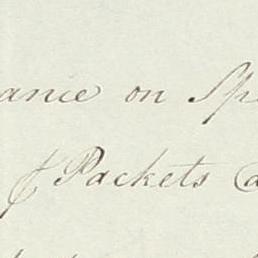 ance on Sp
of Packets a